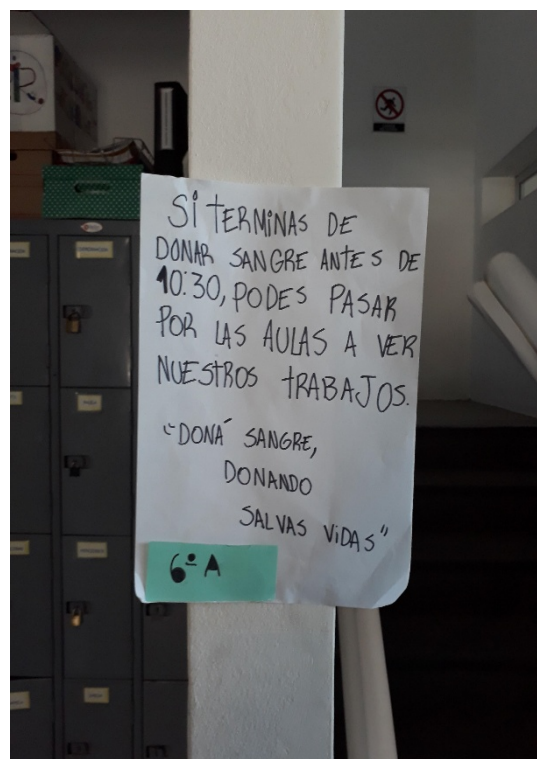 Si TERMINAS DE
DONAR SANGRE ANTES DE
10:30, PODES PASAR
POR LAS AULAS A VER
NUESTROS TRABAJOS.
"DONÁ SANGRE,
DONANDO
SALVAS ViDAS"
6º A